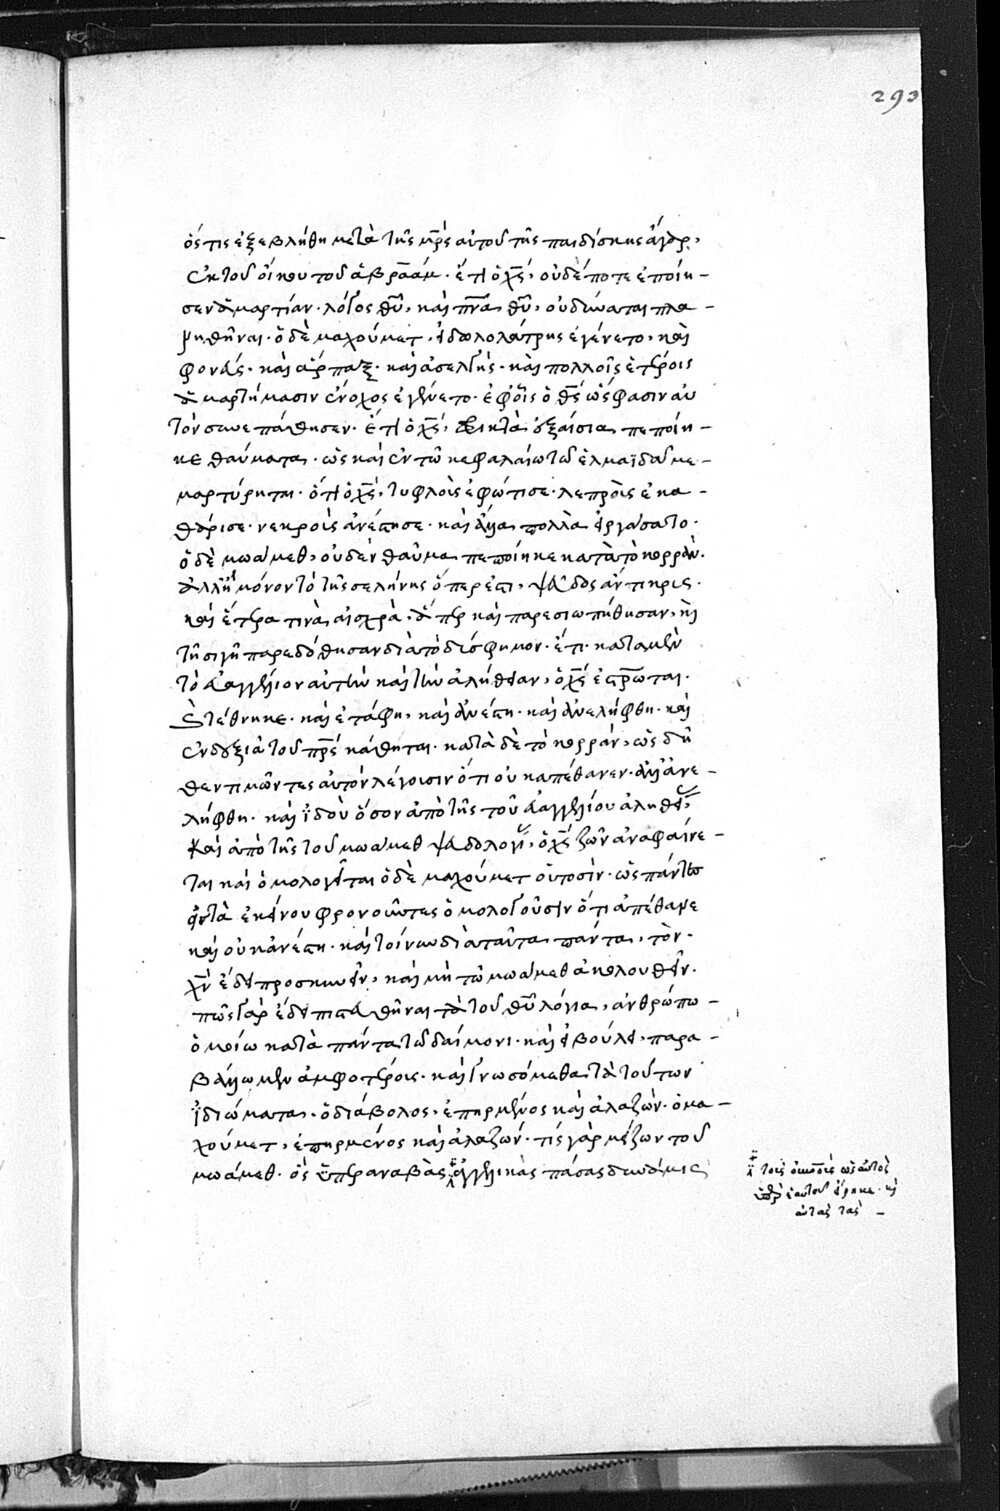 293
ὅς τις ἐξεβλήθη μετὰ τῆς μρ̅ς αὐτοῦ τῆς παιδίσκης ἄγαρ,
ἐκ τοῦ οἴκου τοῦ ἀβραάμ. ἔτι ὁ χς̅, οὐδέποτε ἐποίη-
σεν ἁμαρτίαν. λόγος θυ̅, καὶ πνα̅ θυ̅, οὐ δύναται πλα-
νηθῆναι. ὁ δὲ μαχούμετ, εἰδωλολάτρης ἐγένετο, καὶ
φονεὺς. καὶ ἅρπαξ. καὶ ἀσελγὴς. καὶ πολλοῖς ἑτέροις
ἁμαρτήμασιν ἔνοχος ἐγένετο. ἐφ' οἷς ὁ θς̅ ὥς φασιν αὐ
τόν συνεπάθησεν. ἔτι ὁ χς̅, ἐξαίσια πεποίη-
κε θαύματα. ὡς καὶ ἐν τῶ κεφαλαίω τῶ ἐλμαϊδᾶ με-
μαρτύρηται. ὅτι ὁ χς̅, τυφλοὺς ἐφώτισε. λεπροὺς ἐκα-
θάρισε. νεκροὺς ἀνέστησε. καὶ ἄλλα πολλὰ εἰργάσατο.
ὁ δὲ μωάμεθ, οὐδὲν θαῦμα πεποίηκε κατὰ τὸ κορράν.
ἀλλ' ἢ μόνον τὸ τῆς σελήνης ὅπερ ἐστι, ψεῦδος ἀντικρις.
καὶ ἕτερα τινὰ αἰσχρὰ. ἅπερ καὶ παρεσιωπήθησαν, καὶ
τῇ σιγῇ παρεδόθησαν διὰ τὸ δύσφημον. ἔτι. κατὰ μὲν
τὸ εὐαγγέλιον αὐτὴν καὶ τὴν ἀλήθειαν, ὁ χς̅ ἐσταύρωται.
τέθνηκε. καὶ ἐτάφη, καὶ ἀνέστη. καὶ ἀνελήφθη. καὶ
ἐν δεξιᾷ τοῦ πρς̅ κάθηται. κατὰ δὲ τὸ κορράν, ὡς δῆ
θεν τιμῶντες αὐτόν λέγουσιν ὅτι οὐκ ἀπέθανεν. ἀλλ' ἀνε-
λήφθη. καὶ ἰδοὺ ὅσον ἀπὸ τῆς τοῦ εὐαγγελίου ἀληθείας
καὶ ἀπὸ τῆς τοῦ μωάμεθ ψευδολογίας, ὁ χς̅ ζῶν ἀναφαίνε-
ται καὶ ὁμολογεῖται ὁ δὲ μαχούμετ οὑτοσίν. ὡς πάντες
οἱ τὰ ἐκείνου φρονοῦντες ὁμολογοῦσιν ὅτι ἀπέθανε
καὶ οὐκ ἀνέστη. καὶ τοίνυν διὰ ταῦτα πάντα, τὸν.
χν̅ ἔδει προσκυνεῖν, καὶ μὴ τῶ μωάμεθ ἀκολουθεῖν.
πῶς γὰρ ἔδει πιστευθῆναι τὰ τοῦ θυ̅ λόγια, ἀνθρώπω-
ὁμοίω κατὰ πάντα τῶ δαίμονι. καὶ εἰ βούλει, παρα-
βάλλωμεν ἀμφοτέροις. καὶ γνωσόμεθα τὰ τούτων
ἰδιώματα. ὁ διάβολος, ἐπηρμένος καὶ ἀλαζών. ὁ μα-
χούμετ, ἐπηρμένος καὶ ἀλαζών. τίς γὰρ μείζων τοῦ
μωάμεθ. ὃς ὑπεραναβὰς ἀγγελικὰς πάσας δυνάμεις
αὐτὸς
ὑπὲρ ἑαυτοῦ εἴρηκε. καὶ
αὐτὰς τὰς -